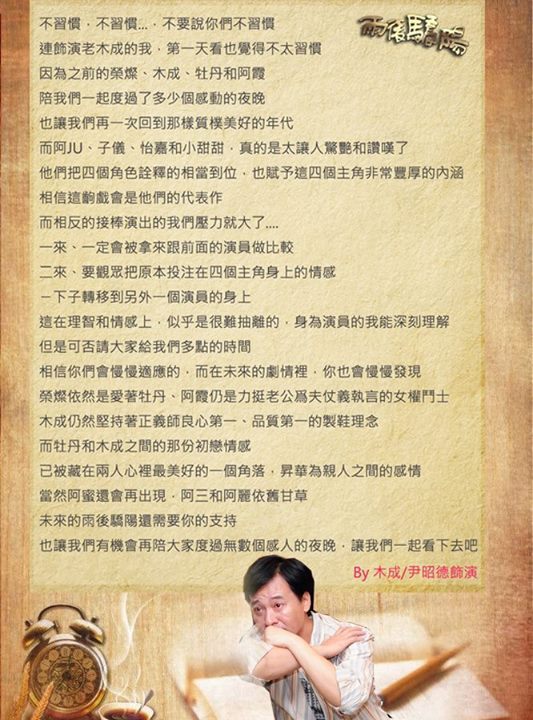 雨後驕陽
不習慣，不習慣...，不要說你們不習慣
連飾演老木成的我，第一天看也覺得不太習慣
因為之前的榮燦、木成、牡丹和阿霞
陪我們一起度過了多少個感動的夜晚
也讓我們再一次回到那樣質樸美好的年代
而阿JU、子儀、怡嘉和小甜甜，真的是太讓人驚艷和讚嘆了
他們把四個角色詮釋的相當到位，也賦予這四個主角非常豐厚的內涵
相信這齣戲會是他們的代表作
而相反的接棒演出的我們壓力就大了....
一來、一定會被拿來跟前面的演員做比較
二來、要觀眾把原本投注在四個主角身上的情感
一下子轉移到另外一個演員的身上
這在理智和情感上，似乎是很難抽離的，身為演員的我能深刻理解
但是可否請大家給我們多點的時間
相信你們會慢慢適應的，而在未來的劇情裡，你也會慢慢發現
榮燦依然是愛著牡丹、阿霞仍是力挺老公爲夫仗義執言的女權鬥士
木成仍然堅持著正義師良心第一、品質第一的製鞋理念
而牡丹和木成之間的那份初戀情感
已被藏在兩人心裡最美好的一個角落，昇華為親人之間的感情
當然阿蜜還會再出現，阿三和阿麗依舊甘草
未來的雨後驕陽還需要你的支持
也讓我們有機會再陪大家度過無數個感人的夜晚，讓我們一起看下去吧
By 木成/尹昭德飾演